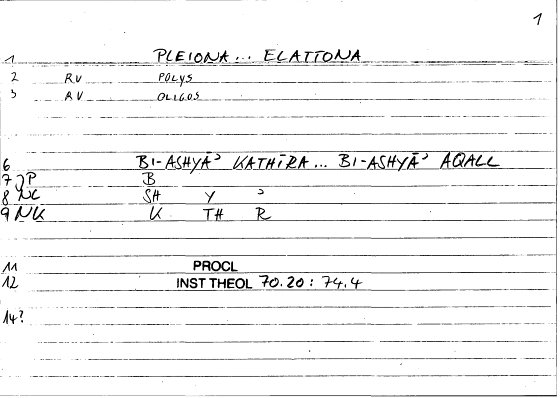 1
1 PLEIONA... ELATTONA
2 RV POLYS
3 RV OLIGOS
6 BI-ASHYĀʾ KATHĪRA... BI-ASHYĀʾ AQALL
7 JP B
8 NC SH Y ʾ
9 NK K TH R
11 PROCL
12 INST THEOL 70.20: 74.4
14?